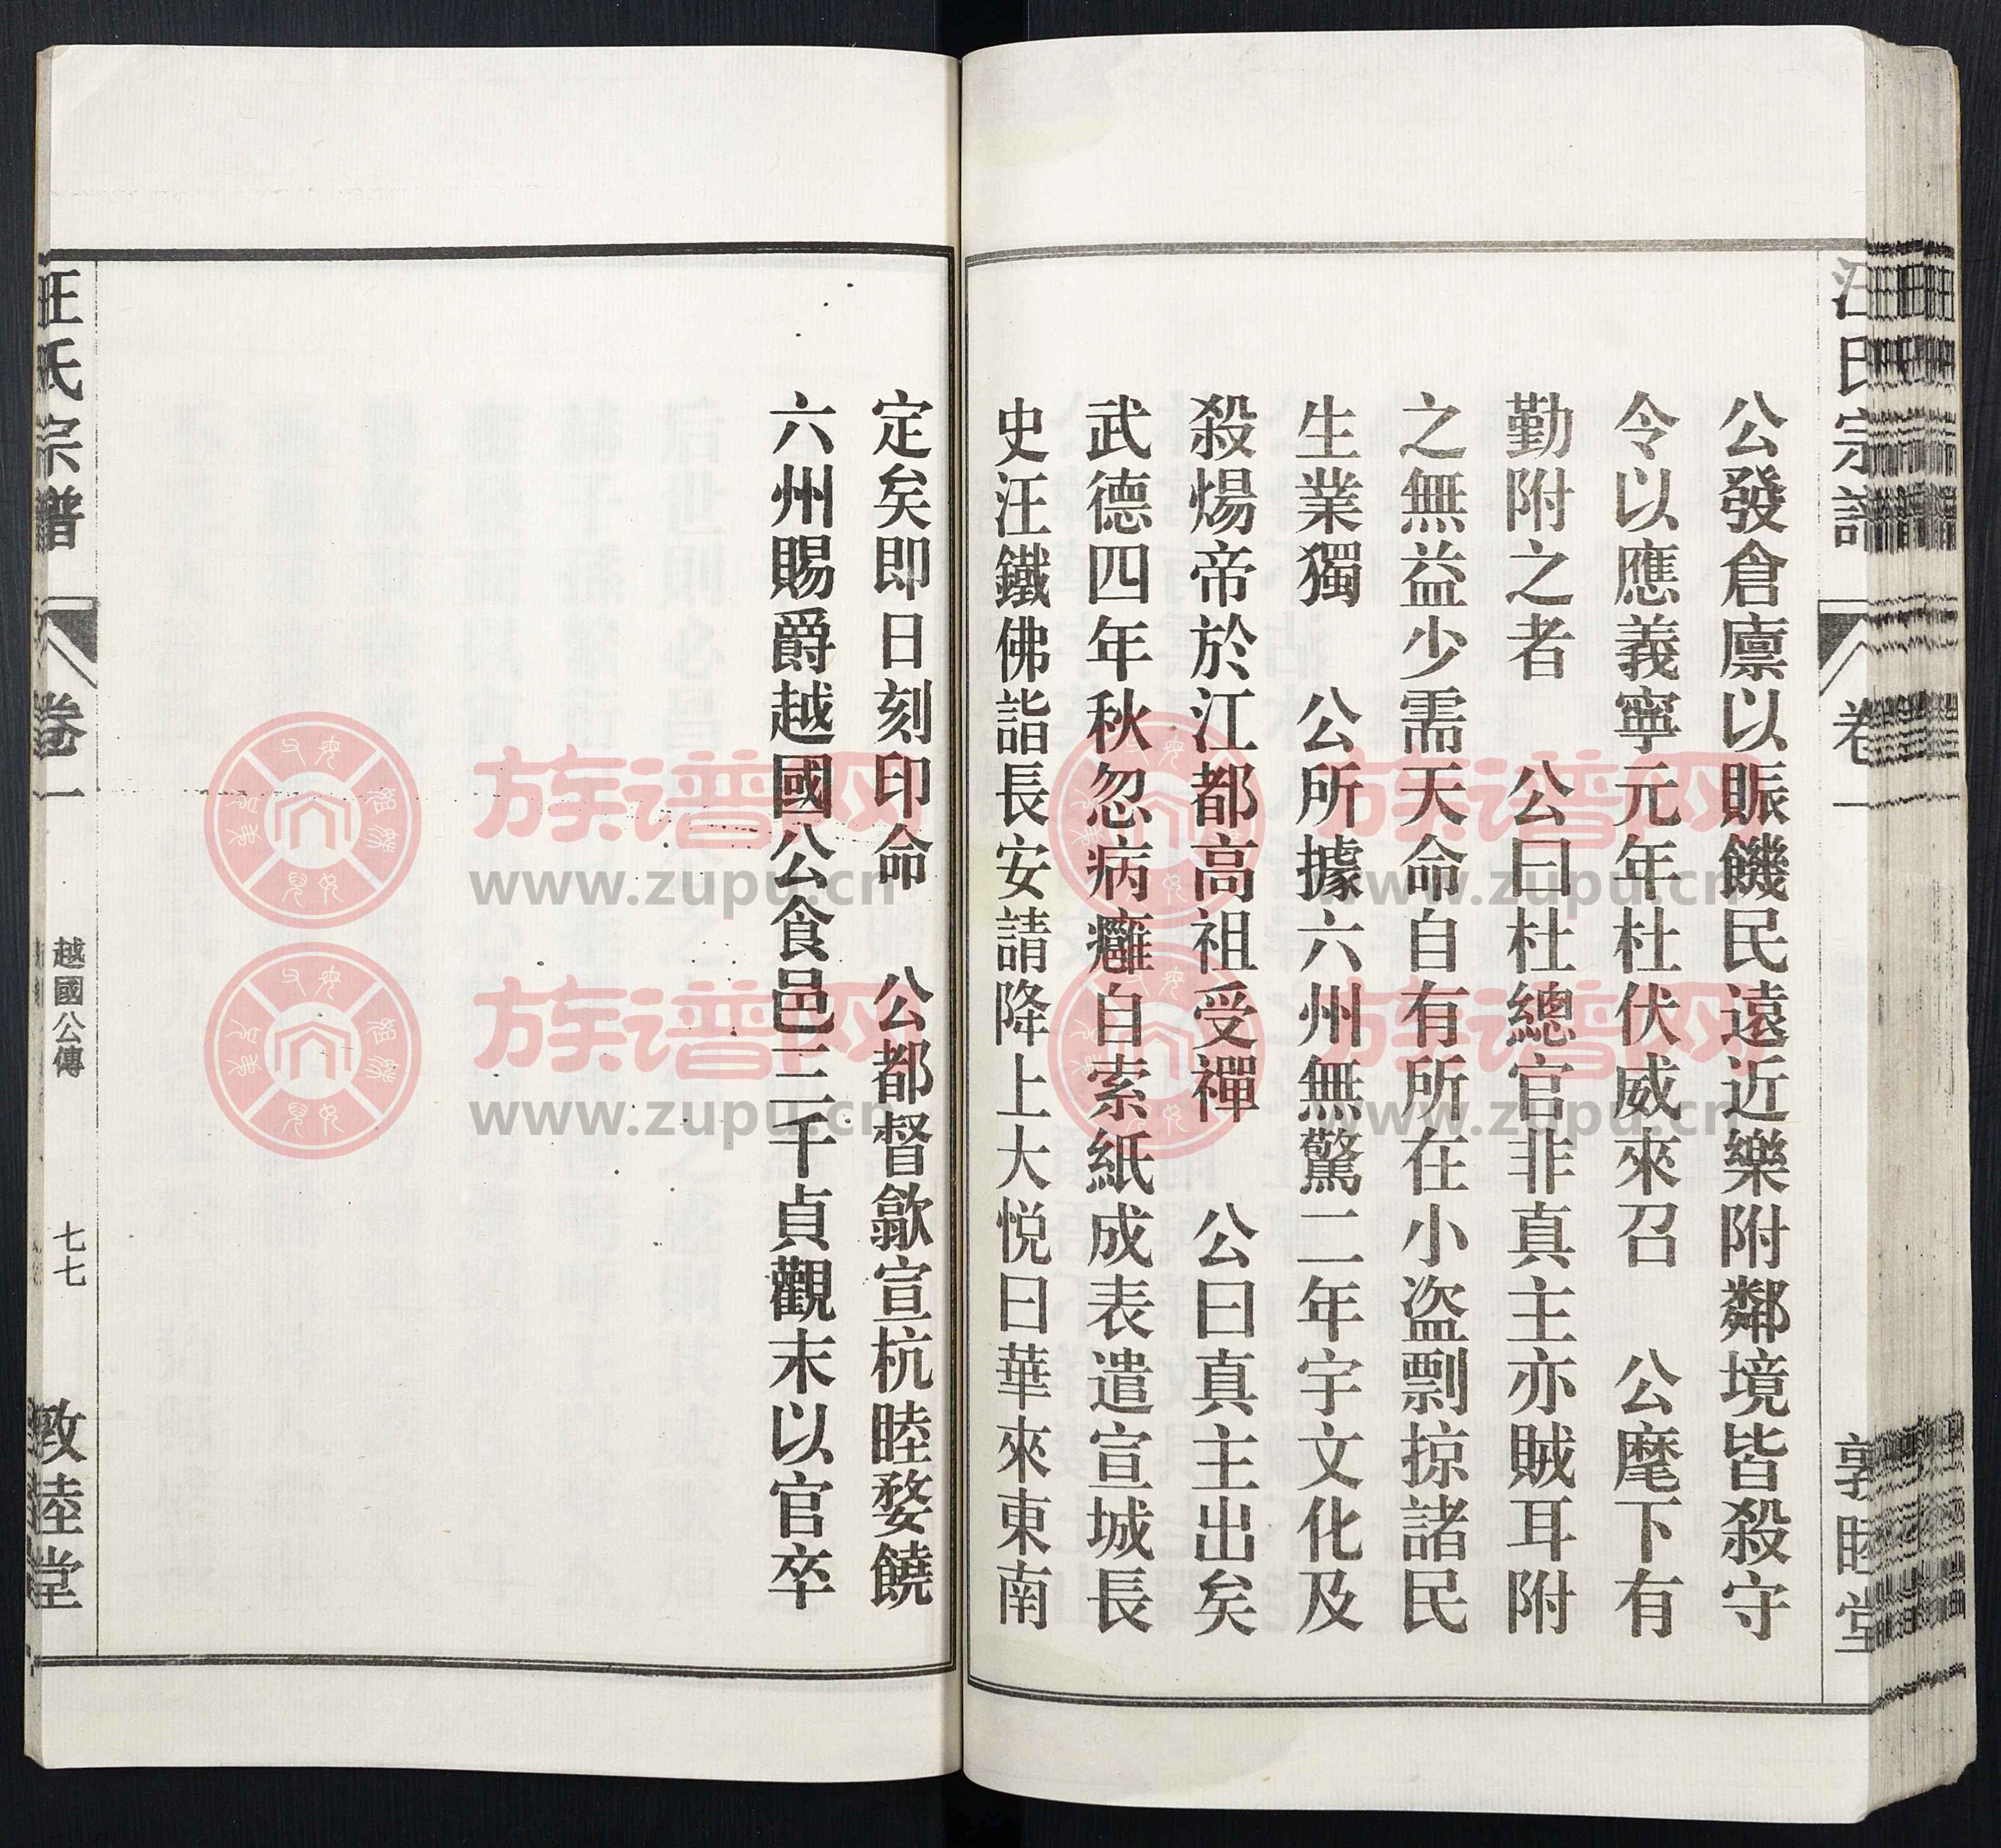 汪氏宗譜
卷一
敦睦堂
公發倉廩以賑饑民遠近樂附鄰境皆殺守
令以應義寧元年杜伏威來召　公麾下有
勤附之者　公曰杜總官非真主亦賊耳附
之無益少需天命自有所在小盗剽掠諸民
生業獨　公所據六州無驚二年宇文化及
殺煬帝於江都高祖受禪　公曰真主出矣
武德四年秋忽病癰自索紙成表遣宣城長
史汪鐵佛詣長安請降上大悅曰華來東南
定矣即日刻印命　公都督歙宣杭睦婺饒
六州賜爵越國公食邑三千貞觀末以官卒
汪氏宗譜
卷一
越國公傳
七七
敦睦堂
族谱网
www.zupu.cn
族谱网
www.zupu.cn
族谱网
www.zupu.cn
族谱网
www.zupu.cn